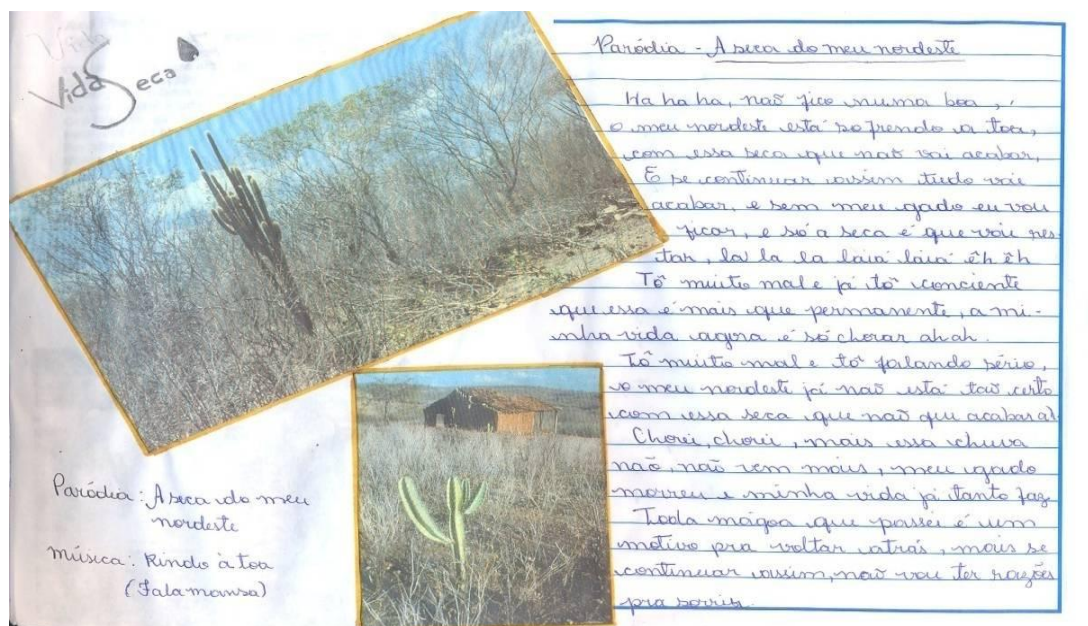 Vida Seca
Paródia: A seca do meu
nordeste
Música: Rindo à toa
(Falamansa)
Paródia - A seca do meu nordeste
Ha ha ha, naõ fico numa boa,
o meu nordeste está sofrendo a toa,
com essa seca que naõ vai acabar,
E se continuar assim tudo vai
acabar, e sem meu gado eu vou
ficar, e só a seca é que vai res
tar, la la la laiá laiá êh êh
Tô muito mal e já tô conciente
que essa é mais que permanente, a mi-
nha vida agora é só chorar ah ah.
Tô muito mal e tô falando sério,
o meu nordeste já naõ está taõ certo
com essa seca que naõ qu acabará
Chorei, chorei, mais essa chuva
naõ, naõ vem mais, meu gado
morreu e minha vida já tanto faz
Toda mágoa que passei é um
motivo pra voltar atrás, mais se
continuar assim, naõ vou ter razões
pra sorrir.